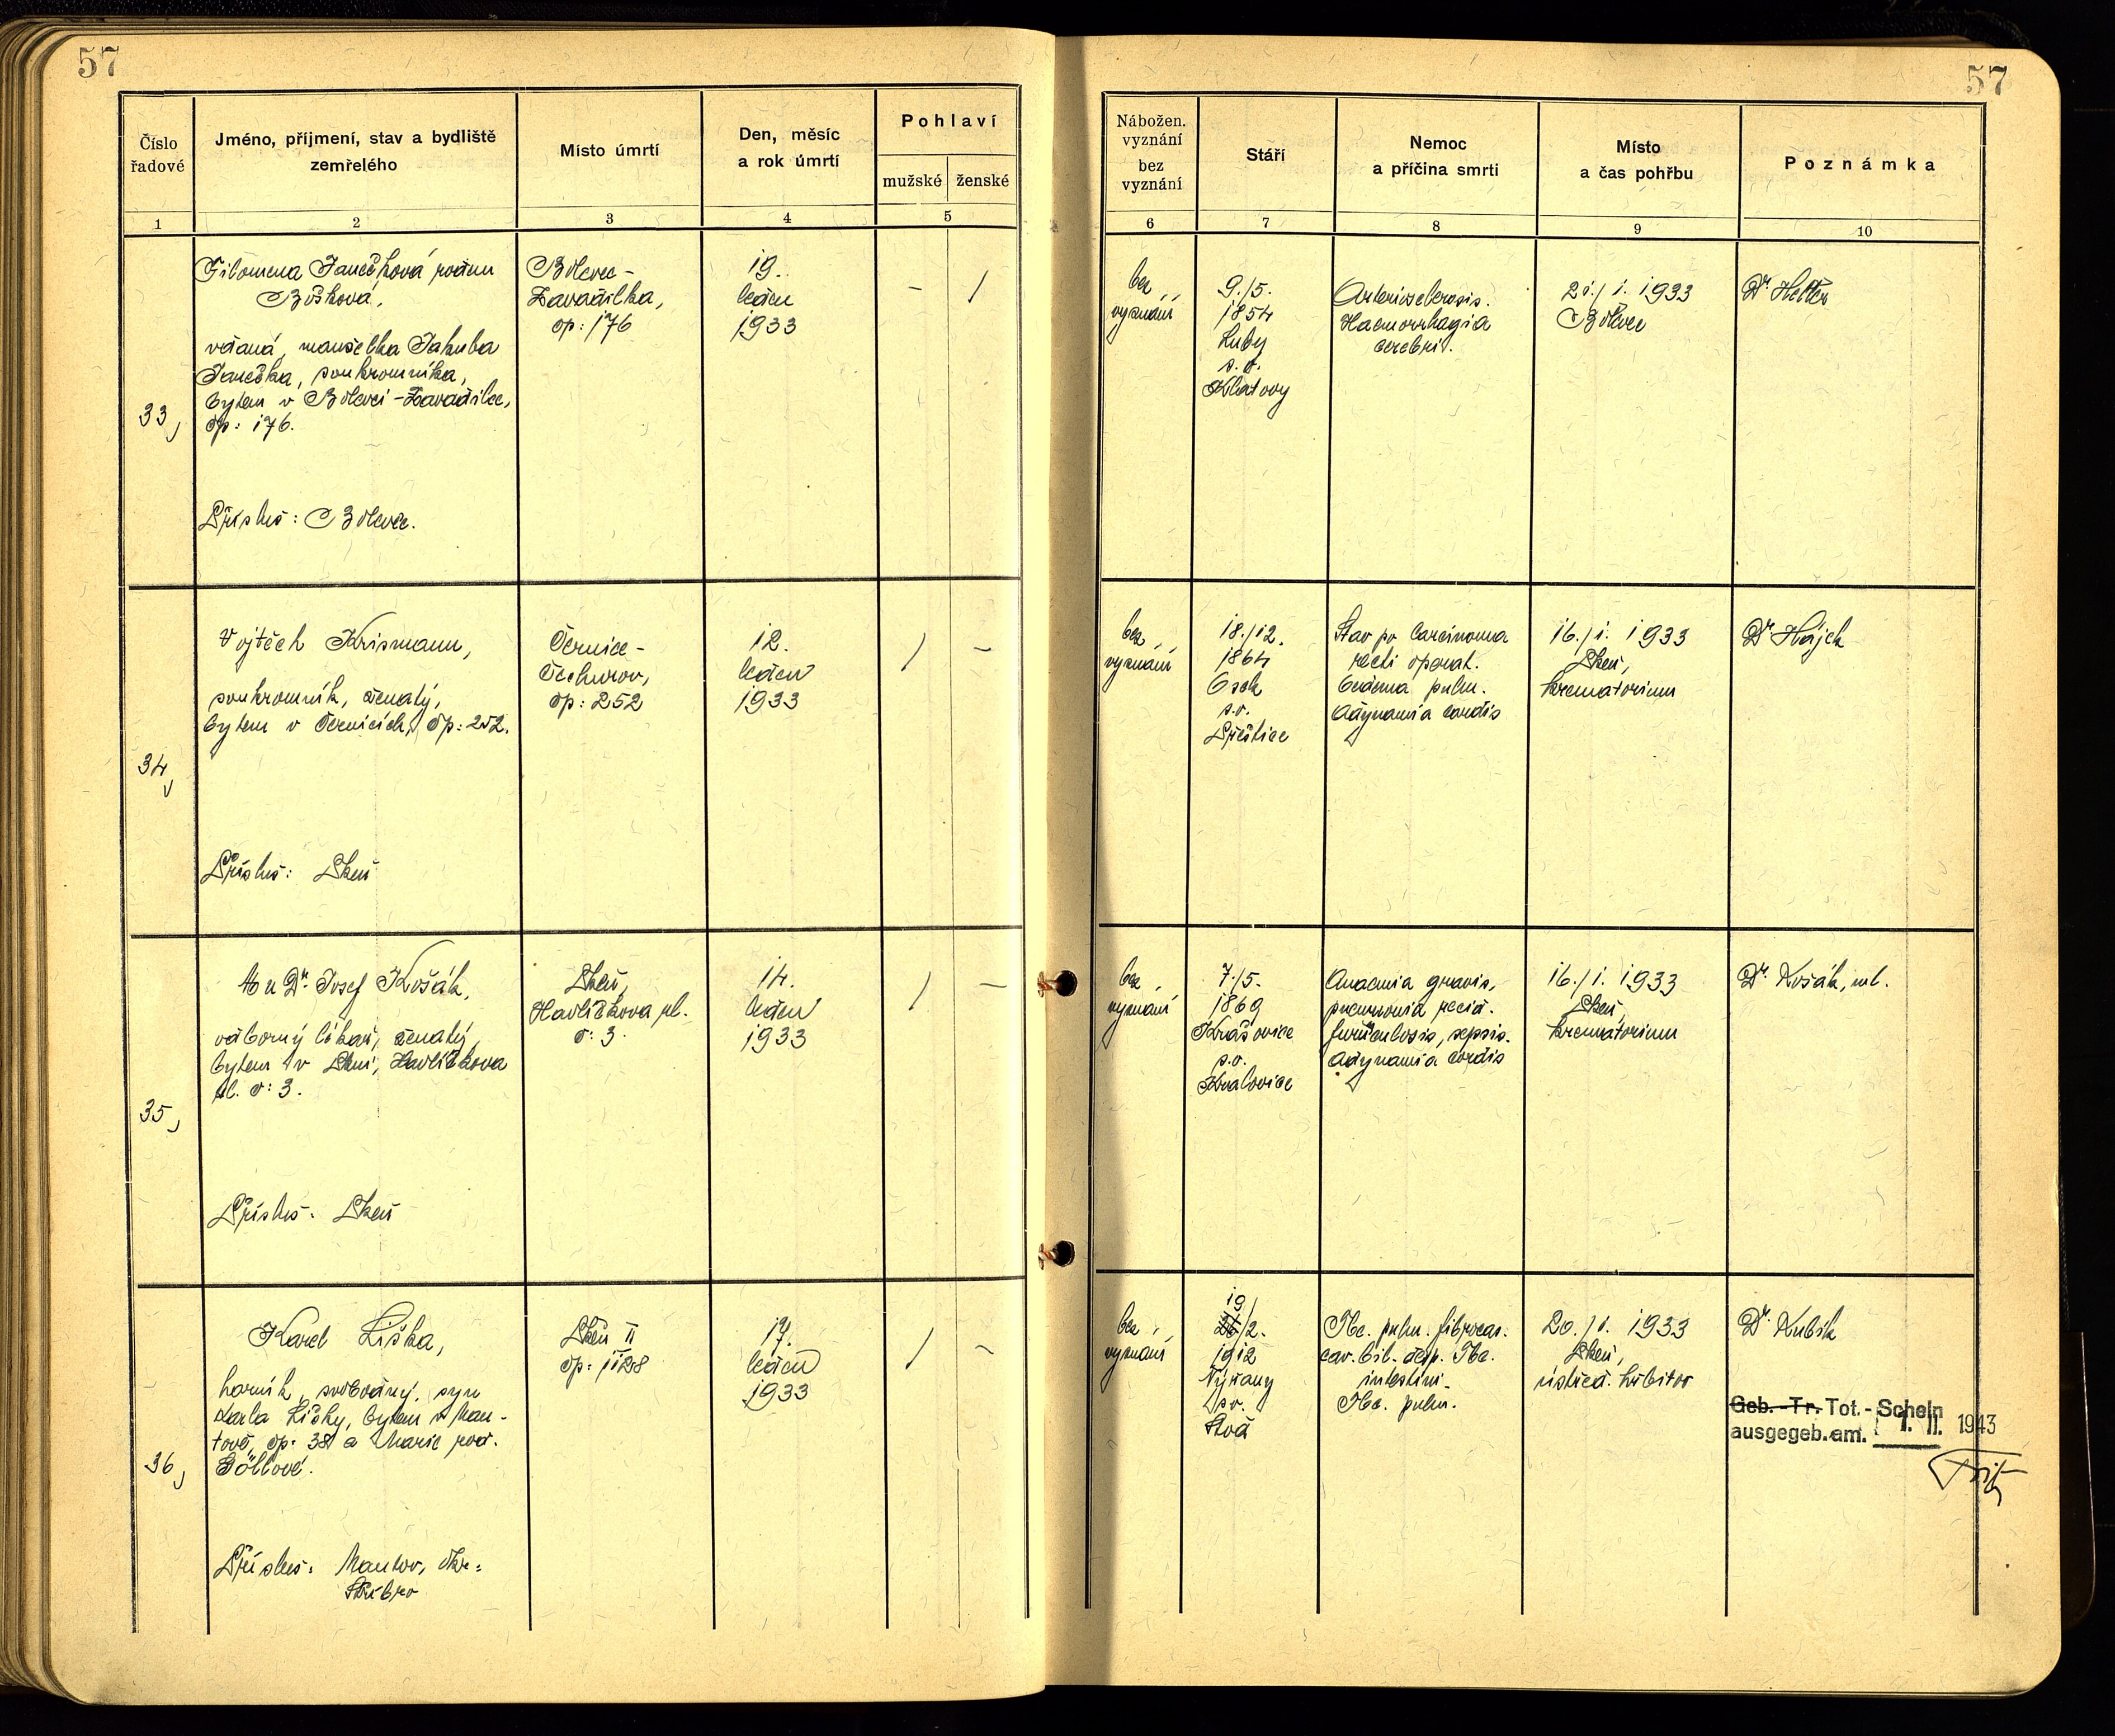 57
57
Číslo
řadové
Jméno, příjmení, stav a bydliště
zemřelého
Místo úmrtí
Den, měsíc
a rok úmrtí
Pohlaví
mužské
ženské
1
2
3
4
5
Nábožen.
vyznání
bez
vyznání
Stáří
Nemoc
a příčina smrti
Místo
a čas pohřbu
Poznámka
6
7
8
9
10
33,
Filomena Janečková rodem
vdaná, manželka Jakuba
Janečka, soukromníka,
bytem v Bolevci-Zavadilce,
čp: 176.
Přísluš: Bolevec.
Bolevec-
Zavadilka,
čp: 176
19.
leden
1933
–
/
bez
vyznání
9./5.
1854
Luby
s. o.
Klatovy
Arteriosclerosis.
Haemorrhagia
cerebri.
21./1. 1933
Bolevec
Dr. Heller
34,
Vojtěch Krismann,
soukromník, ženatý,
bytem v Černicích, čp: 252.
Přísluš: Plzeň
Černice-
Čechurov,
čp: 252
12.
leden
1933
/
–
bez
vyznání
18./12.
1864
Osek
s.o.
Přeštice
Stav po Carcinoma
recti operat.
Oedema pulm.
Adynamia cordis
16./1. 1933
Plzeň,
krematorium
Dr. Hájek
35,
MuDr. Josef Košák,
odborný lékař, ženatý,
bytem v Plzni, Havlíčkova
pl. č: 3.
Přísluš: Plzeň
Plzeň,
Havlíčkova pl.
č: 3.
14.
leden
1933
/
–
bez
vyznání
7./5.
1869
Krašovice
s.o.
Kralovice
Anaemia gravis,
pneumonia recid.
furunculosis, sepsis.
Adynamia cordis
16./1. 1933
Plzeň,
krematorium
Dr. Košák, ml.
36,
Karel Liška,
horník, svobodný, syn
Karla Lišky, bytem v Man-
tově, čp: 38 a Marie roz.
Přísluš: Mantov, okr:
Stříbro
Plzeň II
čp: 1128
17.
leden
1933
/
–
bez
vyznání
19/
/2.
1912
Nýřany
so.
Tbc. pulm. fibrocas.
cav. bil. desp. Tbc.
intestini.
Tbc. pulm.
20./1. 1933
Plzeň,
ústřed. hřbitov
Dr. Kubík
Geb.-Tr. Tot.-Schein
ausgegeb. am. 1. II. 1943